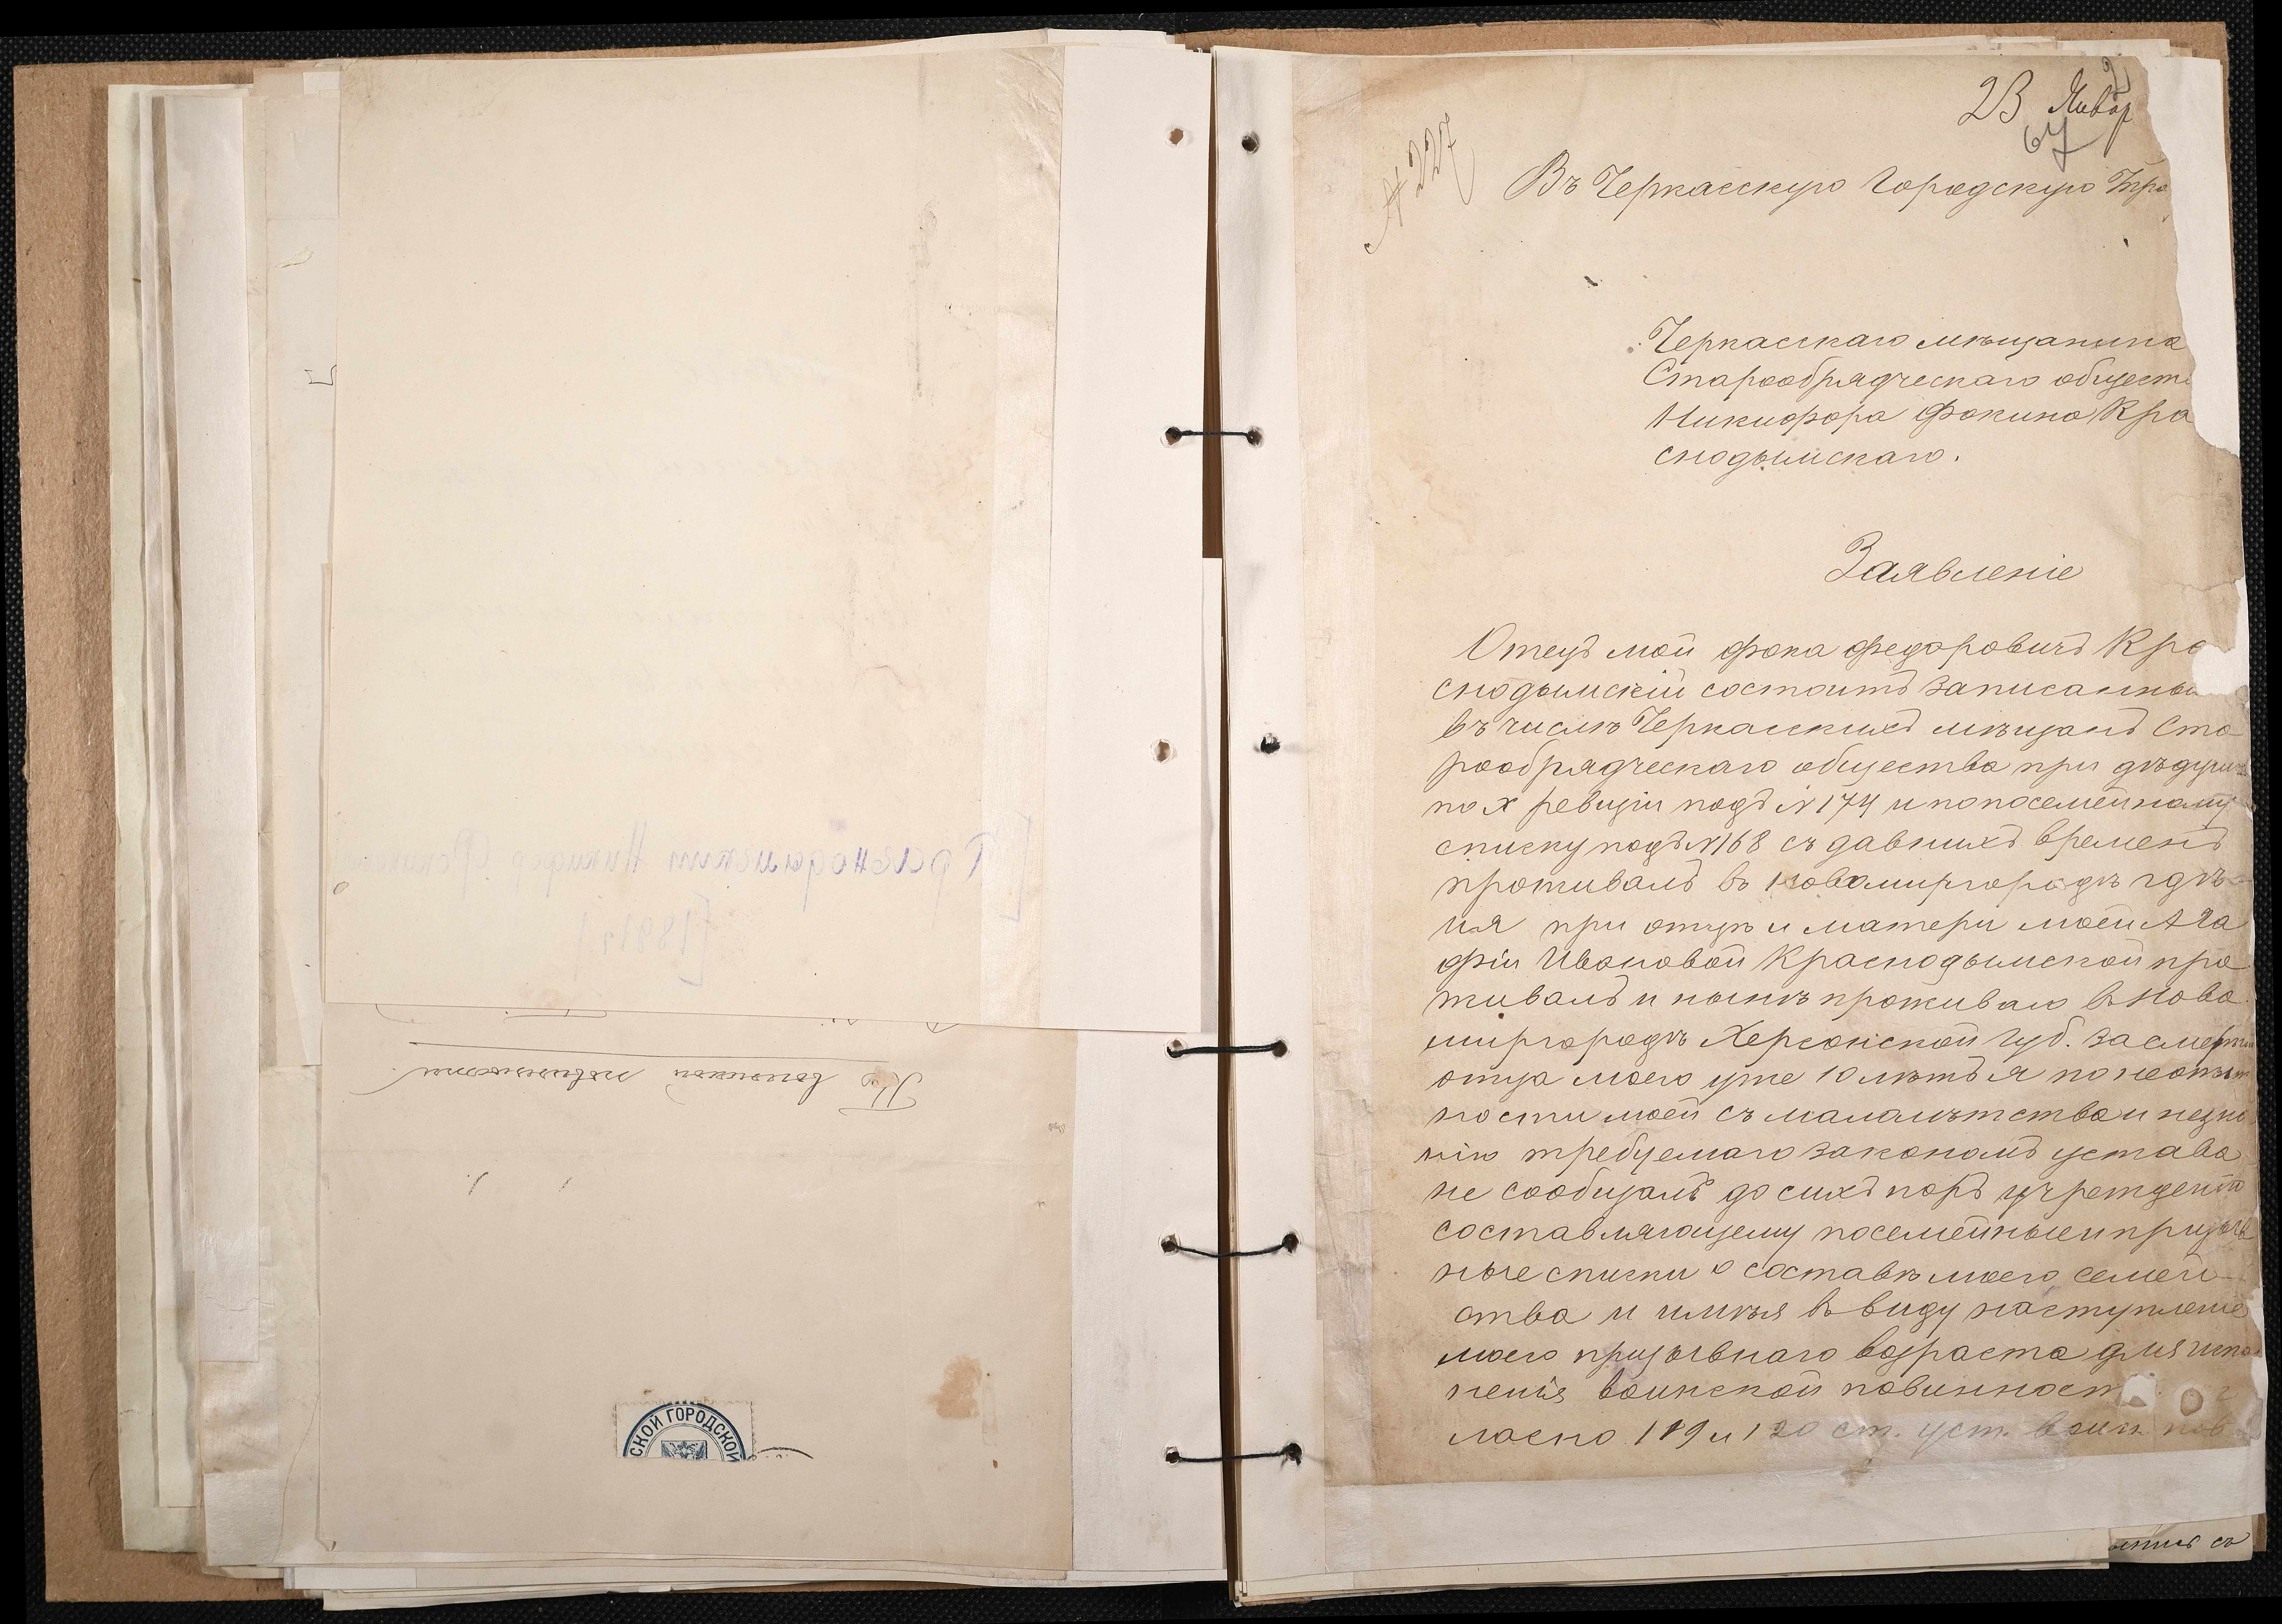 Къ воинской повинности.
СКОЙ ГОРОДСКОЙ
2
23 Январ
67
№ 227
Въ Черкасскую Городскую Упра
Черкасскаго мѣщанина
Старообрядческаго общест
Никифора Фокина Кра
снодымскаго.
Заявленіе
Отецъ мой Фока Федоровичъ Кра
снодымскій состоитъ записанны
въ числѣ Черкасскихъ мѣщанъ Ста
рообрядческаго общества при дѣдушкѣ
по X ревизіи подъ № 174 и попосемейному
списку подъ № 168 съ давнихъ временъ
проживалъ въ Новомиргородѣ гдѣ
и я при отцѣ и матери моей Ага
фіи Ивановой Краснодымской про
живалъ и нынѣ проживаю въ Ново
миргородѣ Херсонской Губ. За смертію
отца моего уже 10 лѣтъ я по неопыт
ности моей съ малолѣтства и незна
нію требуемаго закономъ устава
не сообщалъ до сихъ поръ учрежденію
составляющему посемейные и призыв
ные списки о составѣ моего семей
ства и имѣя въ виду наступленіе
моего призывнаго возраста для испол
ненія воинской повинност
ласно 119 и 120 ст. уст. воин. пов